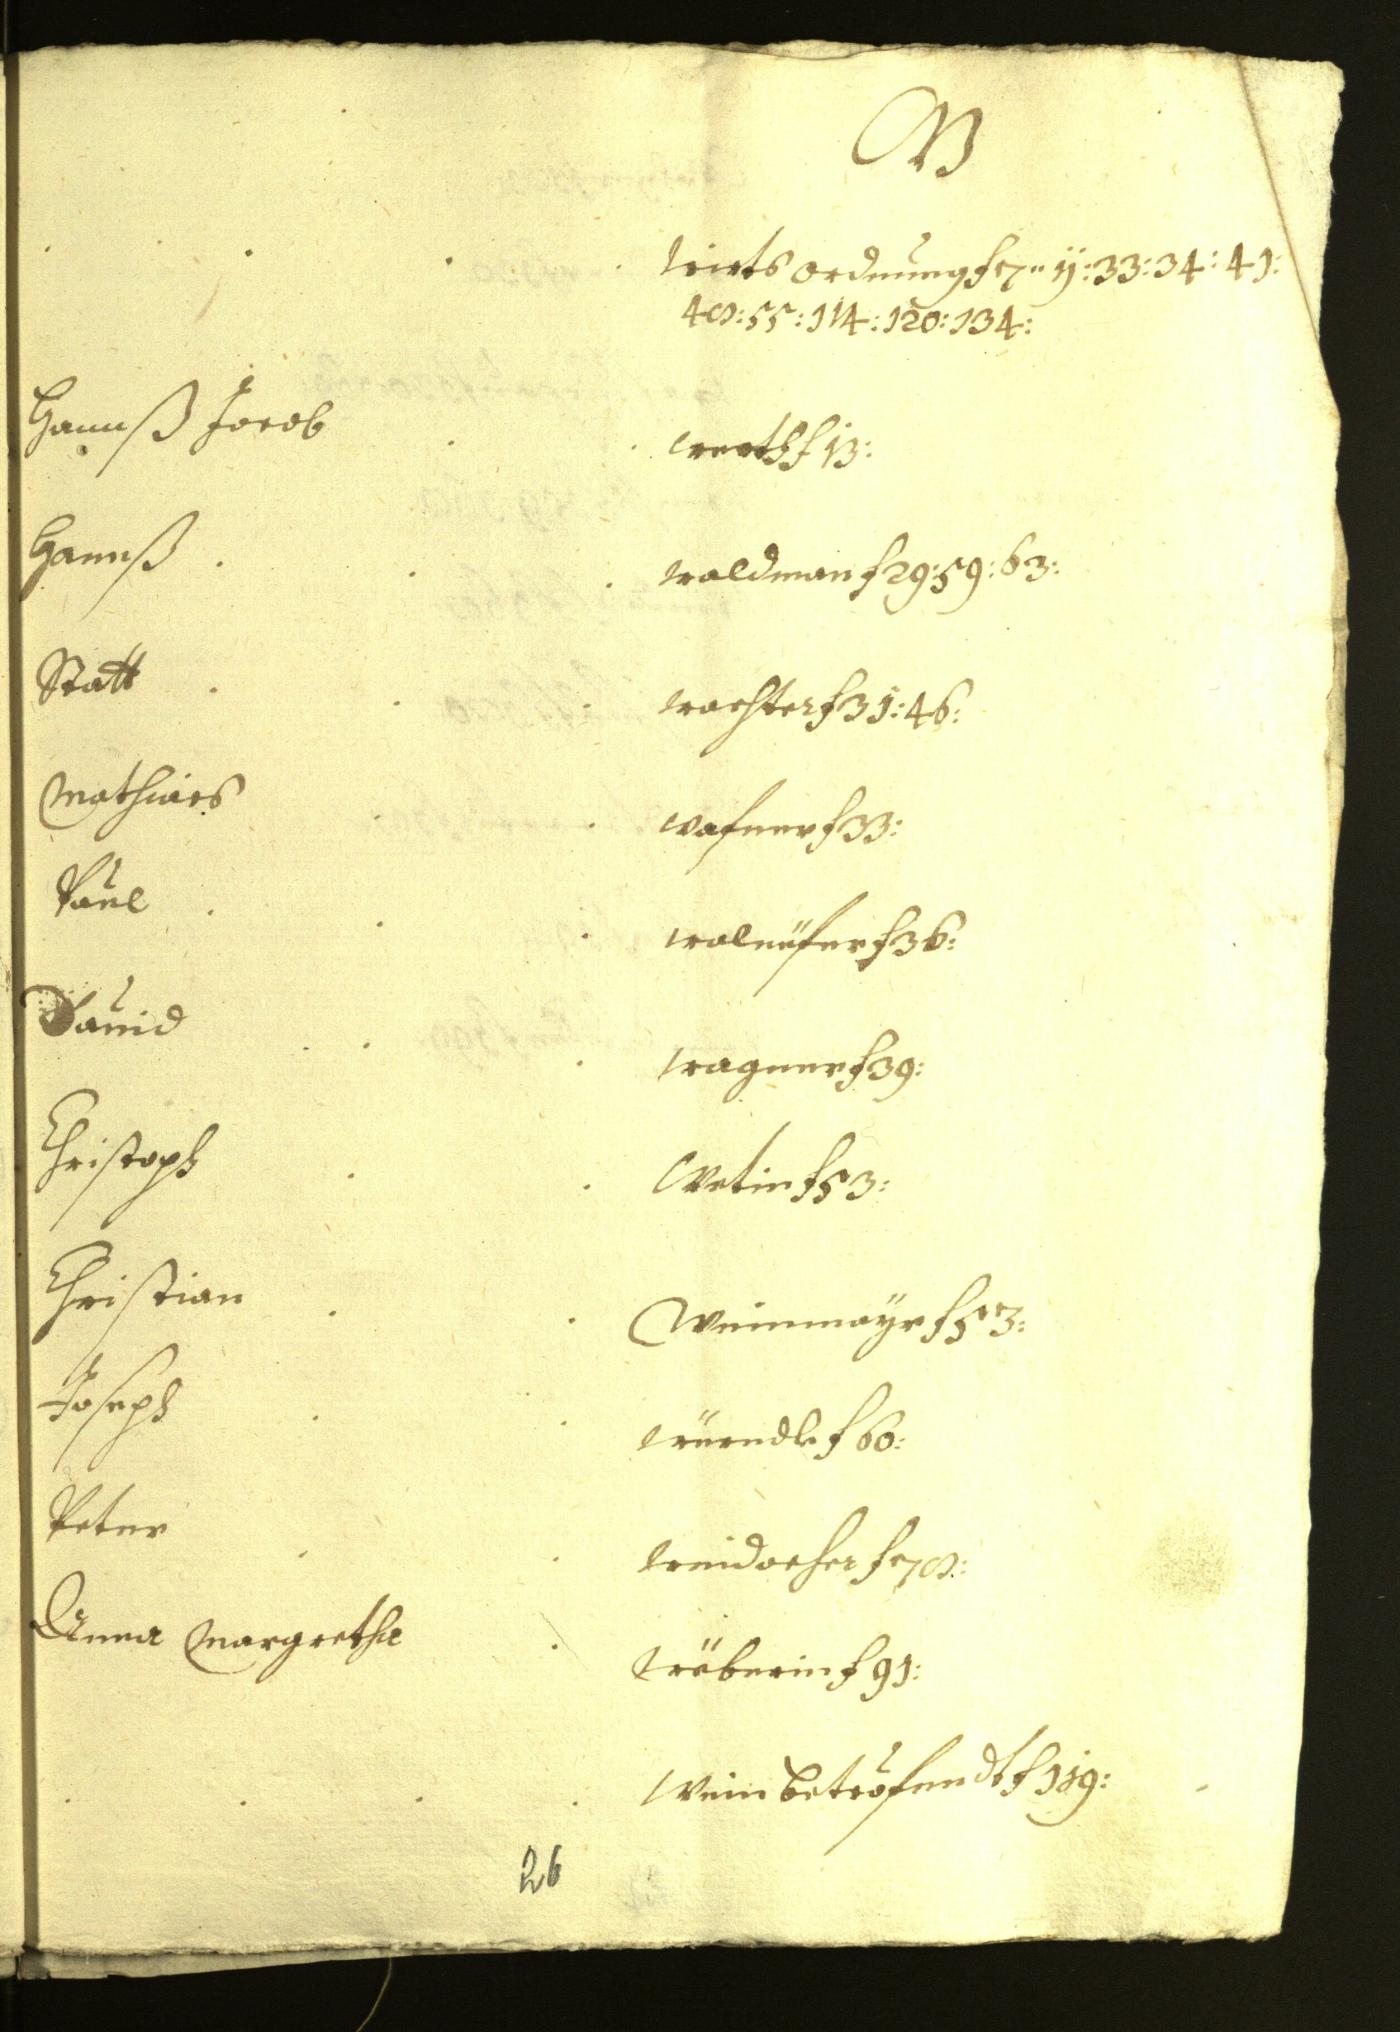 W
wirts ordnung f 7: 11: 33: 34: 41:
48: 55: 114: 120: 134:
Hannß Jacob werth f 13:
Hannß waldman f 29: 59: 63:
Statt wachter f 31: 46:
Mathias wafner f 33:
Paul f 36:
Dauid wagner f 39:
Christoph Wetin f 53:
Christian Weinmaÿr f 53:
Joseph f 60:
Peter weidacher f 78:
Anna Margretha wëberin f 91:
Wein betröfendt f 119:
26